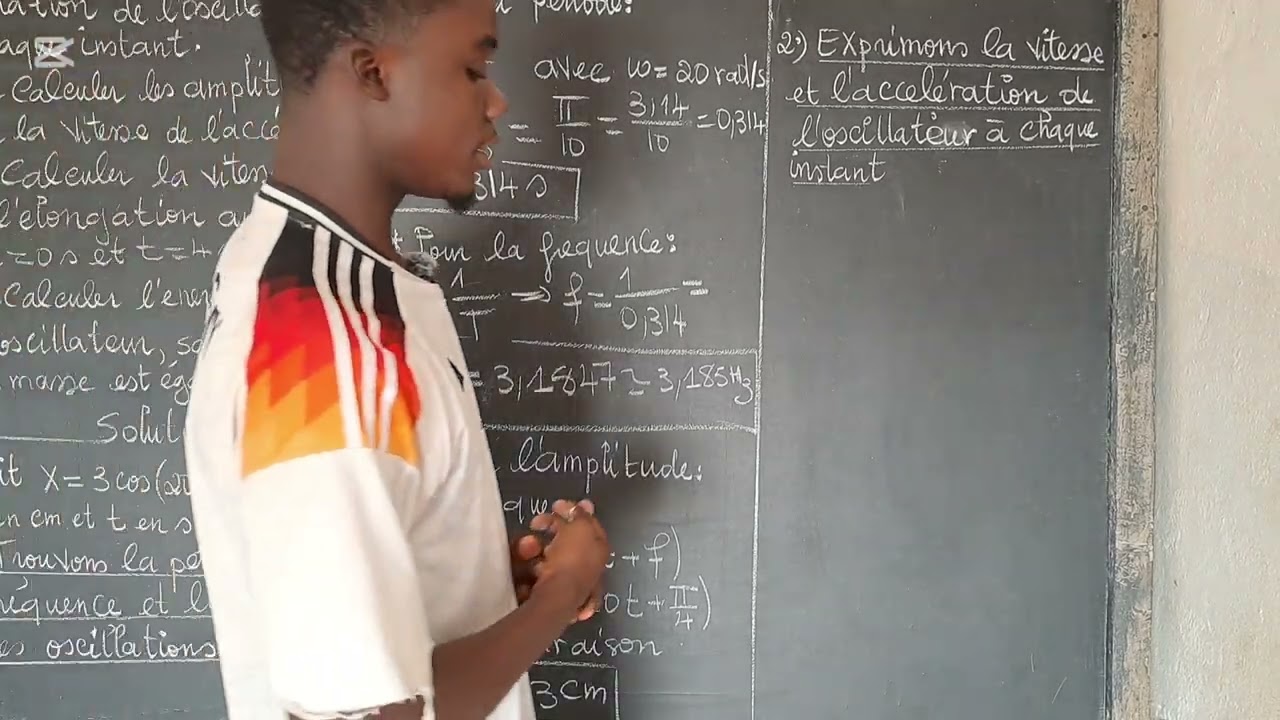 de l'oscilla
instant.
Calculer les amplit
la vitesse de l'accé
Calculer la vites
l'elongation a
=0s et t=4
Calculer l'ener
oscillateur, s
masse est ég
Solut
it X=3cos(20
n cm et t en s
Trouvons la pé
réquence et l'
es oscillations
période:
avec ω=20rad/s
= π/10 = 3,14/10 =0,314
314 s
Pour la frequence:
1/T ⇒ f=1/0,314 =
= 3,1847≃3,185Hz
l'amplitude:
que
t+φ)
0t+π/4)
raison
3cm
2°) EXprimons la vitesse
et l'acceleration de
l'oscillateur à chaque
instant